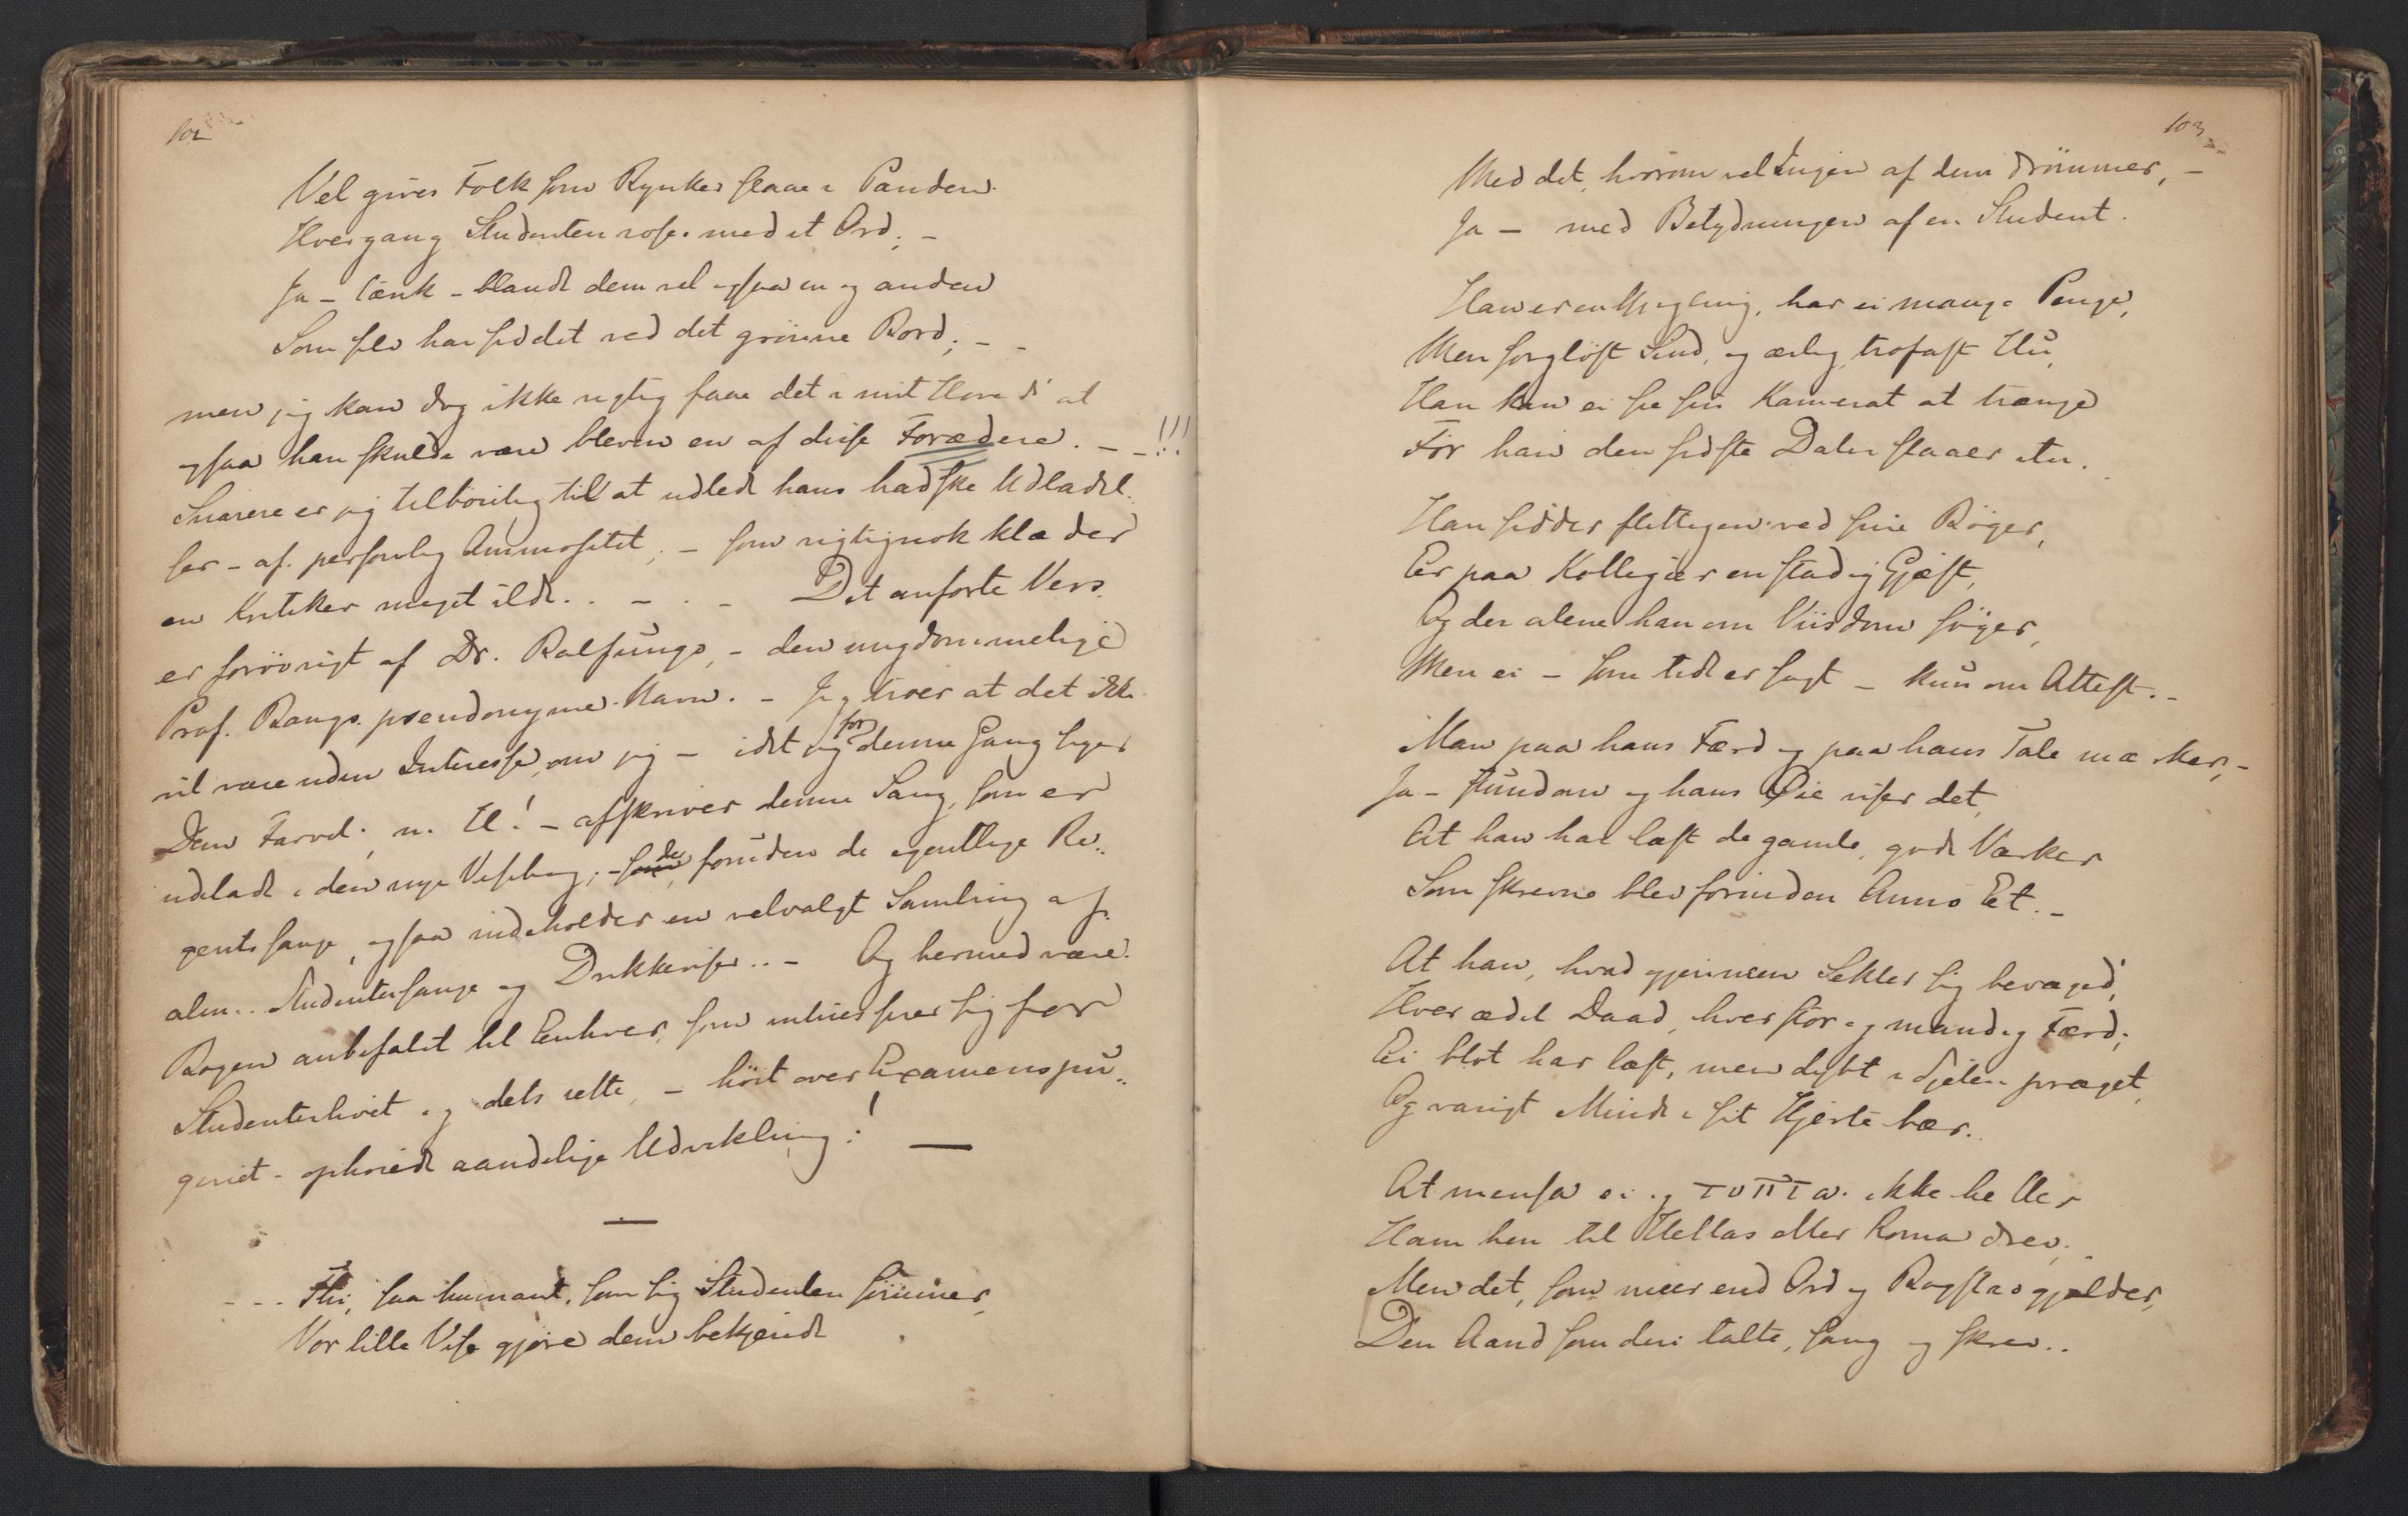 102
Vel gives Folk som Rynker slaae i Panden
Hvergang Studenten roses med et Ord; –
Ja – tænk – blandt dem vel ogsaa en og anden
Som selv har siddet ved det grönne Bord; – –
men jeg kan dog ikke rigtig faae det i mit Hoved' at
ogsaa han skulde være bleven en af disse Forædere. – –!!!
Snarere er jeg tilböielig til at udlede hans hadske Udladel-
ser – af personlig Animositet; – som rigtignok klæder
en Kritiker meget ilde. . – . – Det anförte Vers
er forövrigt af Dr. Balfungo, – den ungdommelige
Prof. Bangs pseudonyme Navn. – Jeg troer at det ikke
vil være uden Interesse, om jeg – idet jeg for denne Gang siger
Dem Farvel, n. H! – afskriver denne Sang, som er
udeladt i den nye Visebog; – der, foruden de egentlige Re-
gents sange, ogsaa indeholder en velvalgt Samling af
alm.. Studentersange og Drikkeviser.. – Og hermed være
Bogen anbefalet til Enhver, som interesserer sig for
Studenterlivet og dets rette, – höit over Examenspu-
geriet – ophöiede aandelige Udvikling! —
—
- - - Thi, saa humant, som sig Studenten sömmer,
Vor lille Vise gjöre dem bekjendt
103
Med det, hvorom vel Ingen af dem drömmer, –
Ja – med Betydningen af en Student.
Han er en Yngling, har ei mange Penge,
Men sorglöst Sind, og ærlig, trofast Hu,
Han kan ei see sin Kamerat at trænge
För han den sidste Daler slaaer itu.
Han sidder flittigen ved sine Böger,
Er paa Kollegier en stadig Gjæst,
Og der alene han om Viisdom söger,
Men ei – som tidt er sagt – kun om Attest. –
Man paa hans Færd og paa hans Tale mærker, –
Ja – stundom og hans Öie viser det,
At han har læst de gamle, gode Værker
Som skrevne blev forinden Anno Et. –
At han, hvad gjennem Sekler sig bevæged',
Hver ædel Daad, hver stor og mandig Færd;
Ei blot har læst, men dybt i Sjelen præget,
Og varigt Minde i sit Hjerte bær.
At mensa ei og τυπτω ikke heller
Ham hen til Hellas eller Roma drev;
Men det, som meer end Ord og Bogstav gjælder,
Den Aand som deri talte, sang og skrev..